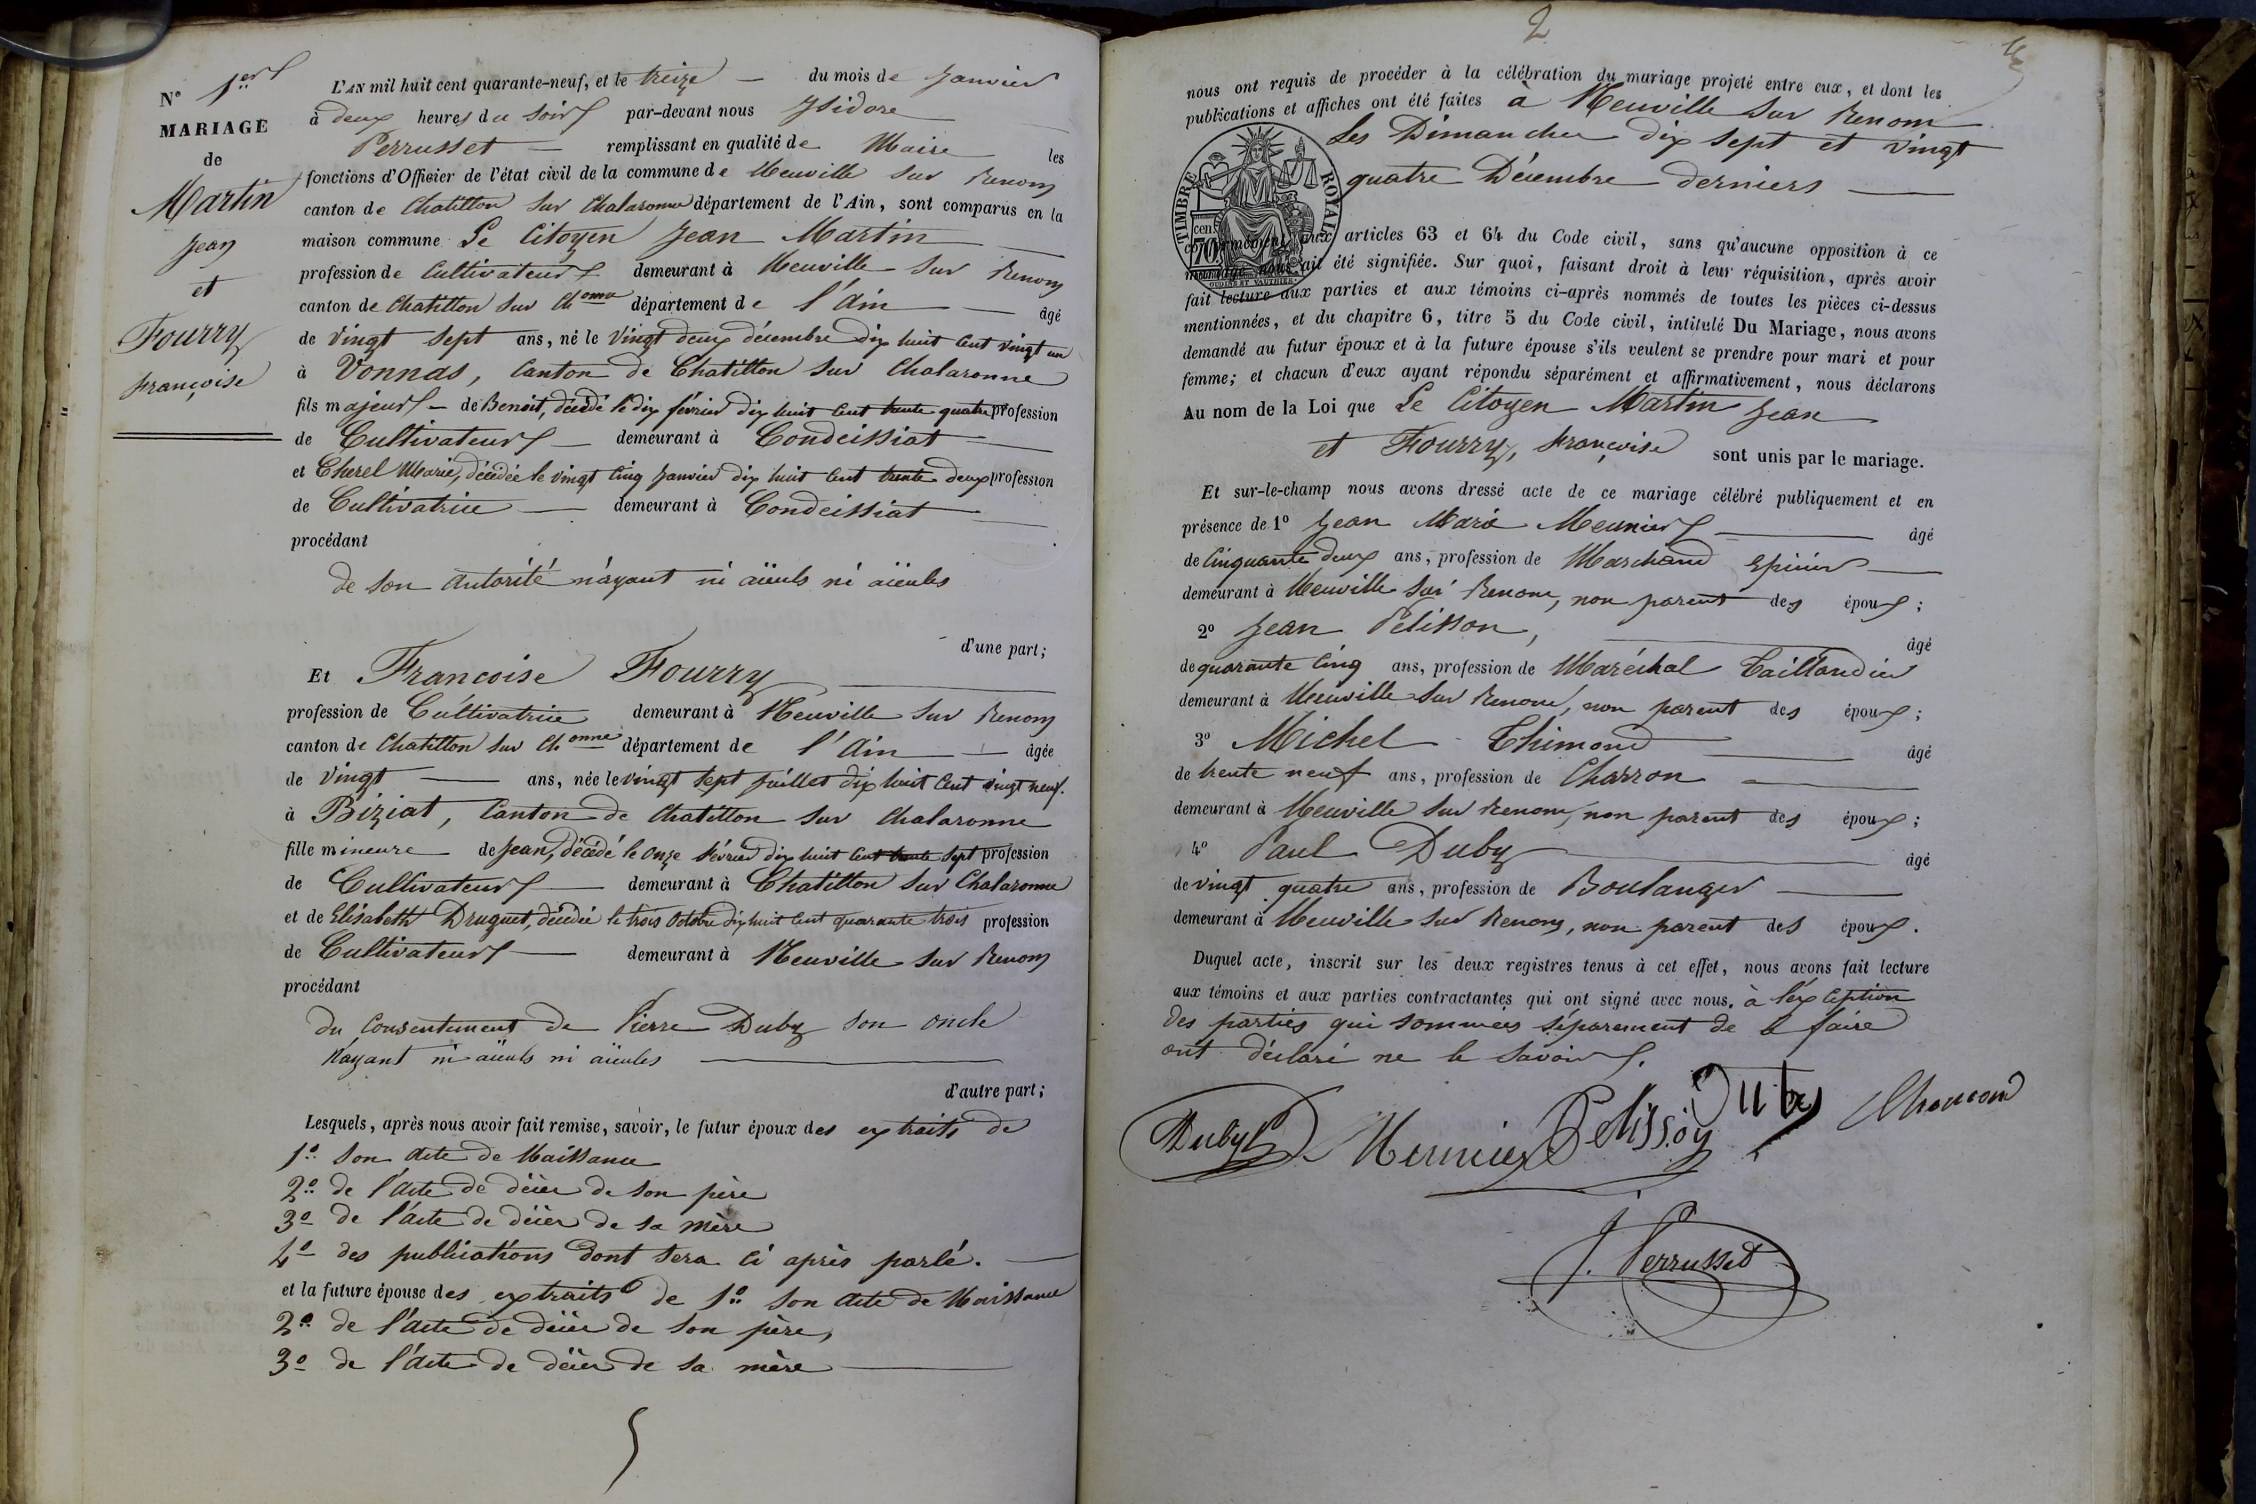 N° 1er
MARIAGE
de
Martin
Jean
et
Fourry
françoise
L'AN mil huit cent quarante-neuf, et le treize du mois de Janvier
à deux heures du soir par-devant nous Isidore
Perrusset remplissant en qualité de Maire les
fonctions d'Officier de l'état civil de la commune de Neuville sur Renom
canton de Chatillon sur Chalaronne département de l'Ain, sont comparus en la
maison commune Le Citoyen Jean Martin
profession de Cultivateur demeurant à Neuville sur Renom
canton de Chatillon sur Chonne département de l'Ain âgé
de vingt sept ans, né le vingt deux décembre dix huit cent vingt un
à Vonnas, Canton de Chatillon sur Chalaronne
fils majeur de Benoit, décédé le dix février dix huit cent trente quatre profession
de Cultivateur demeurant à Condeissiat
et Cherel Marie, décédée le vingt cinq janvier dix huit cent trente deux profession
de Cultivatrice demeurant à Condeissiat
procédant
de son autorité n'ayant ni aïeuls ni aïeules
d'une part;
Et Francoise Fourry
profession de Cultivatrice demeurant à Neuville sur Renom
canton de Chatillon sur Chonne département de l'Ain âgée
de vingt ans, née le vingt sept juillet dix huit cent vingt neuf.
à Biziat, Canton de Chatillon sur Chalaronne
fille mineure de Jean, décédé le onze février dix huit cent trente sept profession
de Cultivateur demeurant à Chatillon sur Chalaronne
et de Elisabeth Druguet, décédée le trois octobre dix huit cent quarante trois profession
de Cultivateur demeurant à Neuville sur Renom
procédant
du consentement de Pierre Duby son oncle
N'ayant ni aïeuls ni aïeules
d'autre part;
Lesquels, après nous avoir fait remise, savoir, le futur époux des extraits de
1° son acte de Naissance
2° de l'acte de décès de son père
3° de l'acte de décès de sa mère
4° des publications dont sera ci après parlé.
et la future épouse des extraits de 1° son acte de Naissance
2° de l'acte de décès de son père,
3° de l'acte de décès de sa mère
2
nous ont requis de procéder à la célébration du mariage projeté entre eux, et dont les
publications et affiches ont été faites à Neuville sur Renom
Les Dimanches dix sept et vingt
quatre Décembre derniers
TIMBRE ROYAL
cen. 70
conformément aux articles 63 et 64 du Code civil, sans qu'aucune opposition à ce
mariage nous ait été signifiée. Sur quoi, faisant droit à leur réquisition, après avoir
fait lecture aux parties et aux témoins ci-après nommés de toutes les pièces ci-dessus
mentionnées, et du chapitre 6, titre 5 du Code civil, intitulé Du Mariage, nous avons
demandé au futur époux et à la future épouse s'ils veulent se prendre pour mari et pour
femme; et chacun d'eux ayant répondu séparément et affirmativement, nous déclarons
Au nom de la Loi que Le Citoyen Martin Jean
et Fourry, françoise sont unis par le mariage.
Et sur-le-champ nous avons dressé acte de ce mariage célébré publiquement et en
présence de 1° Jean Marie Meunier âgé
de Cinquante deux ans, profession de Marchand Epicier
demeurant à Neuville sur Renom, non parent des époux;
2° Jean Pélisson, âgé
de quarante cinq ans, profession de Maréchal Taillandier
demeurant à Neuville sur Renom, non parent des époux;
3° Michel Thimond âgé
de trente neuf ans, profession de Charron
demeurant à Neuville sur Renom, non parent des époux;
4° Paul Duby âgé
de vingt quatre ans, profession de Boulanger
demeurant à Neuville sur Renom, non parent des époux.
Duquel acte, inscrit sur les deux registres tenus à cet effet, nous avons fait lecture
aux témoins et aux parties contractantes qui ont signé avec nous. à l'exception
des parties qui sommées séparement de le faire
ont déclaré ne le savoir.
Duby P Meunier Pelisson Duby Thimond
J. Perrusset